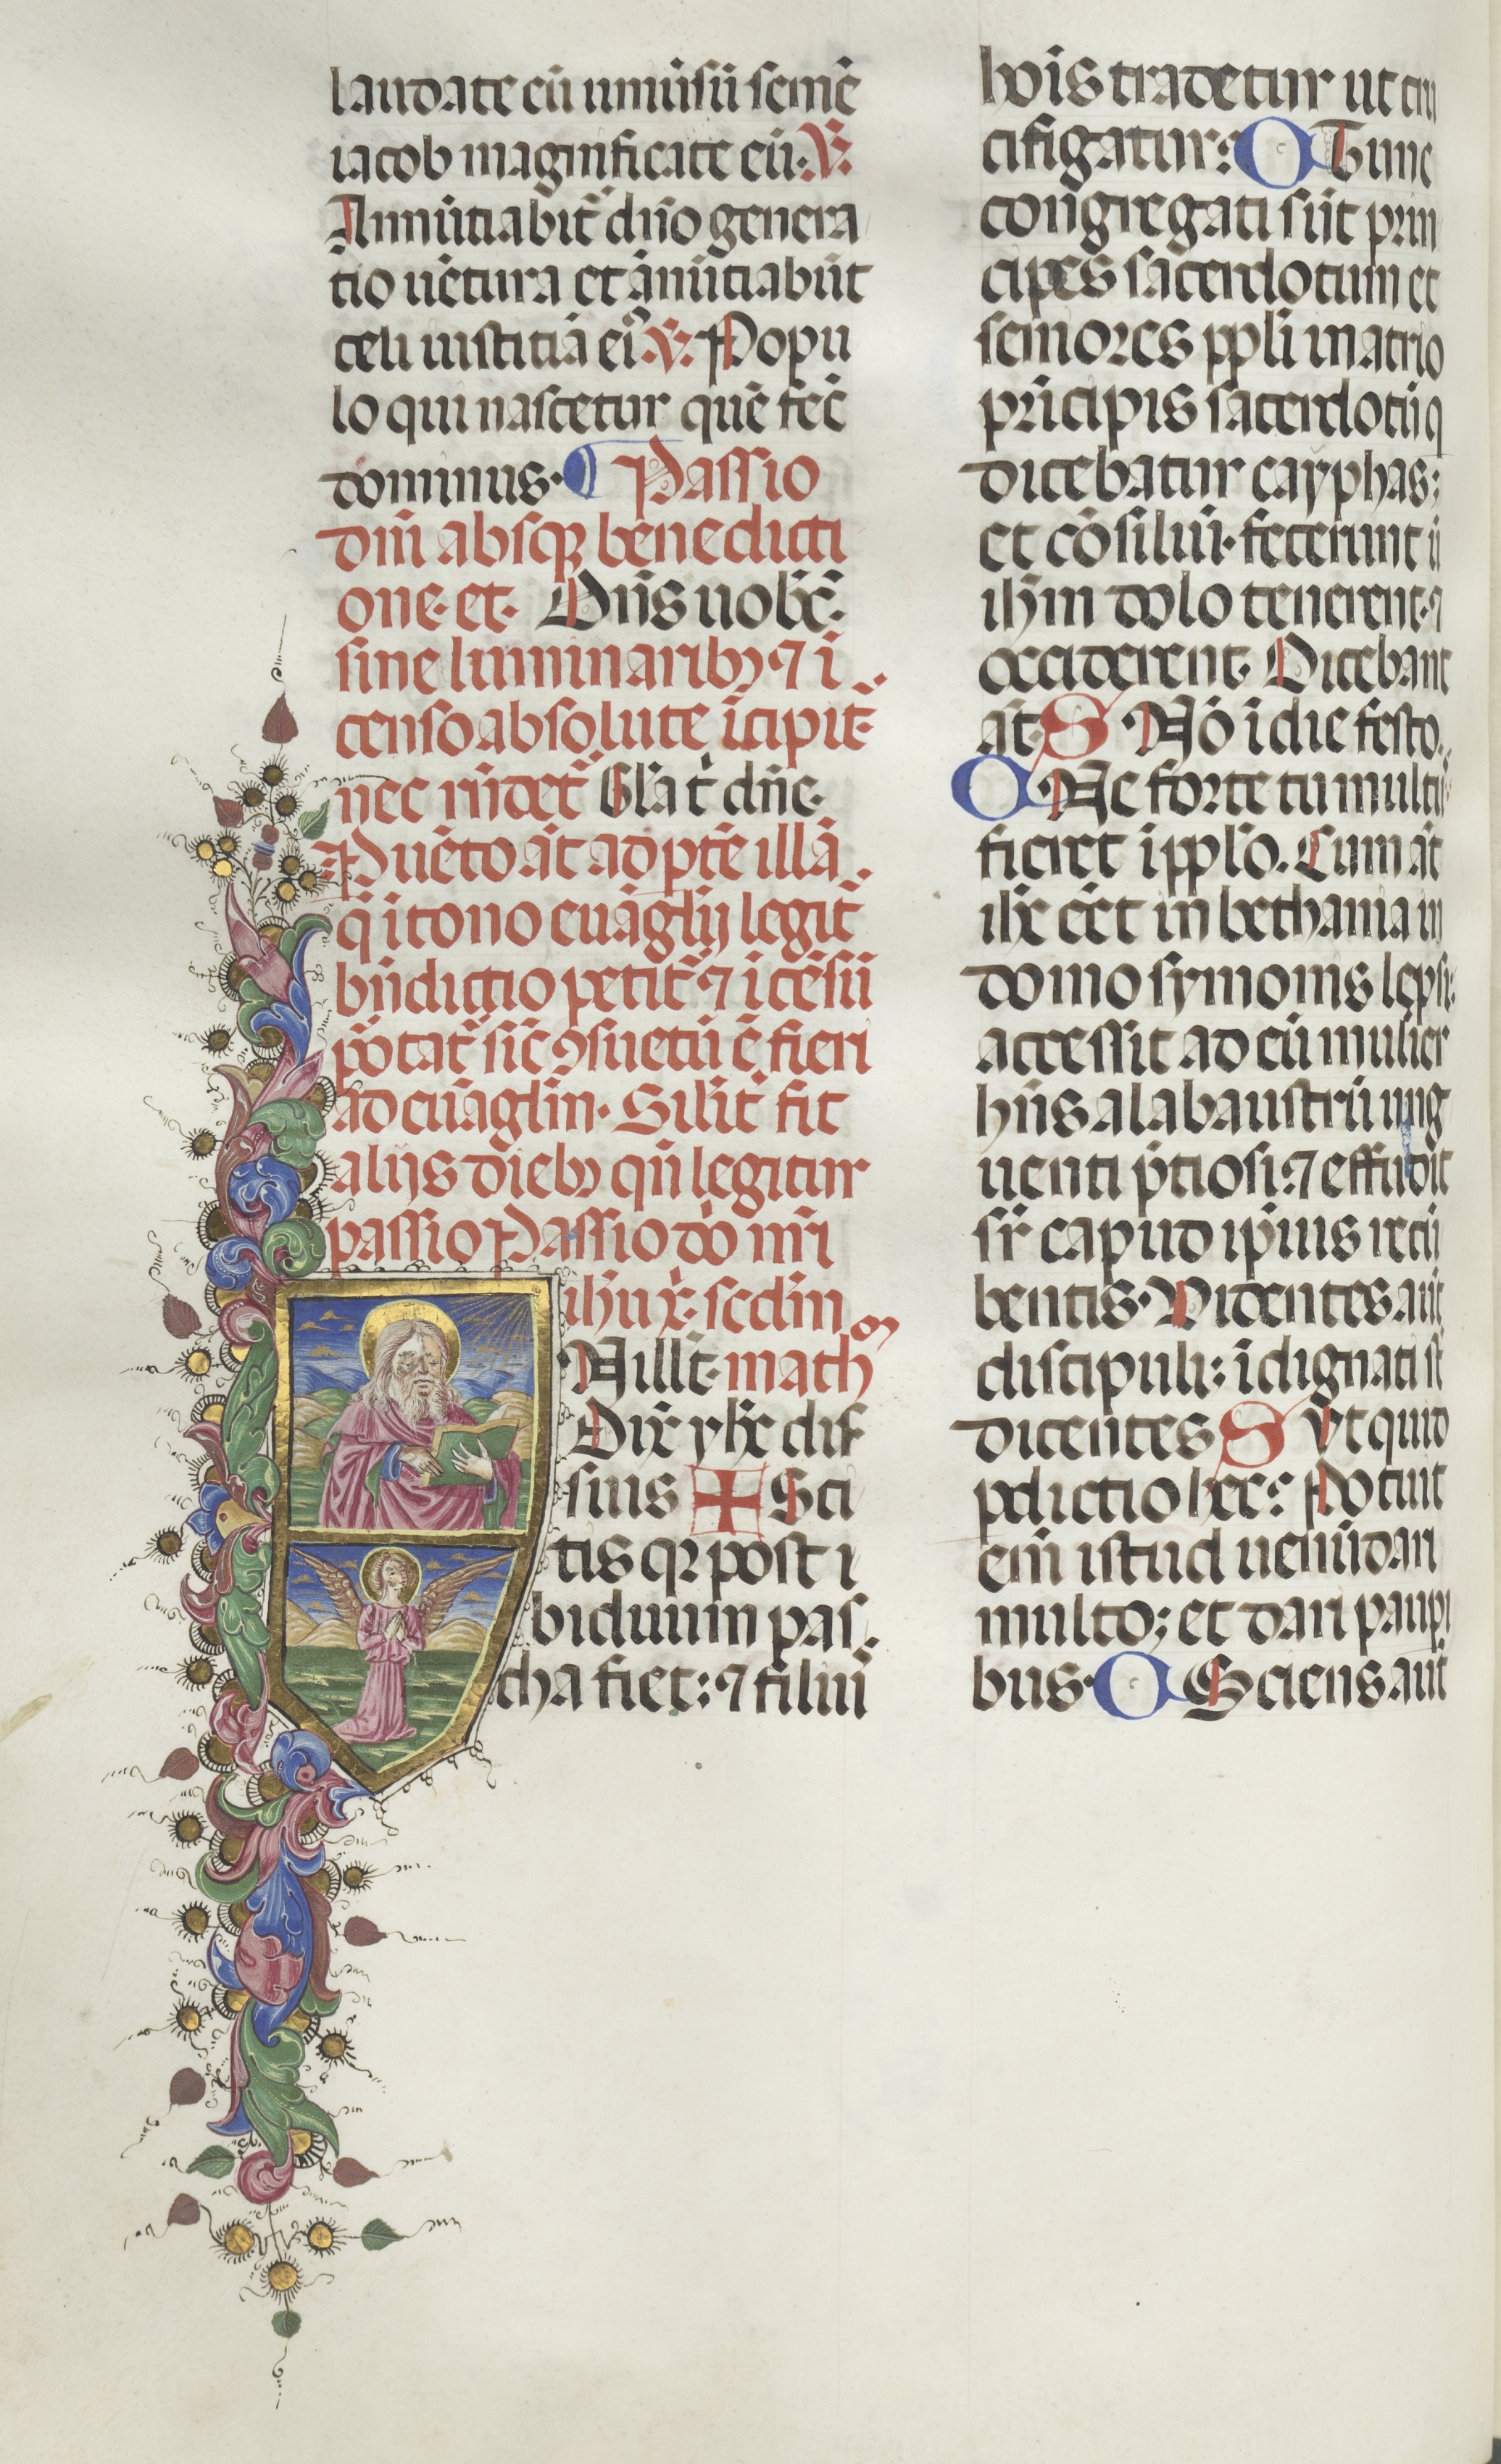 laudate eū uniūsū semē
iacob magnificate eū. V.
Annūtiabit̄ dn̄o genera
tio uētura et ānūtiabūt
celi iustitiā ei⁹. V. Popu
lo qui nascetur quē fec̄
dominus. ¶ Passio
dn̄i absqꝫ benedicti
one. et. Dn̄s uobc̄.
sine luminaribꝫ ⁊ ī
censo absolute īcipit̄
nec rn̄det̄ Gl̄a t̄ dn̄e.
Puēto āt ad ptē illā
q̄ ī tono euāglij legit̄
bn̄dictio petit̄ ⁊ īcēsū
pōtat̄ sic̄ ꝯsuetū ē fieri
ad euāgliū. Silīt̄ fit
alijs diebꝫ qn̄ legitur
passio Passio dō nr̄i
ihū xp̄. scd̄m
N illt̄. math̄
Dix̄ yhc̄ disc̄
suis ✠ Sci
tis qꝛ post ī
biduum pas
cha fiet: ⁊ filiū
hoīs tradetur ut cru
cifigatur: C Tunc
congregati sūt prin
cipes sacerdotum et
seniores ppli in atrio
prīcipis sacerdotū q
dicebatur cayphas:
et cōsiliū. fecerunt ū
ihm dolo tenerent. ⁊
occiderent. Dicebant
āt. S Nō ī die festo.
C Ne forte tumultu
fieret ī pplo. Cum āt
ihc̄ eēt in bethania in
domo symonis lepsi:
accessit ad eū mulier
hn̄s alabaustrū ung
uenti p̄tiosi: ⁊ effudit
sr̄ capud ipīus recū
bentis. Videntes aūt
discipuli: īdignati st̄
dicentes S Ut quid
pdictio hec: Potuit
eīm istud uenūdari
multo; et dari paupi
bus. C Sciens aūt